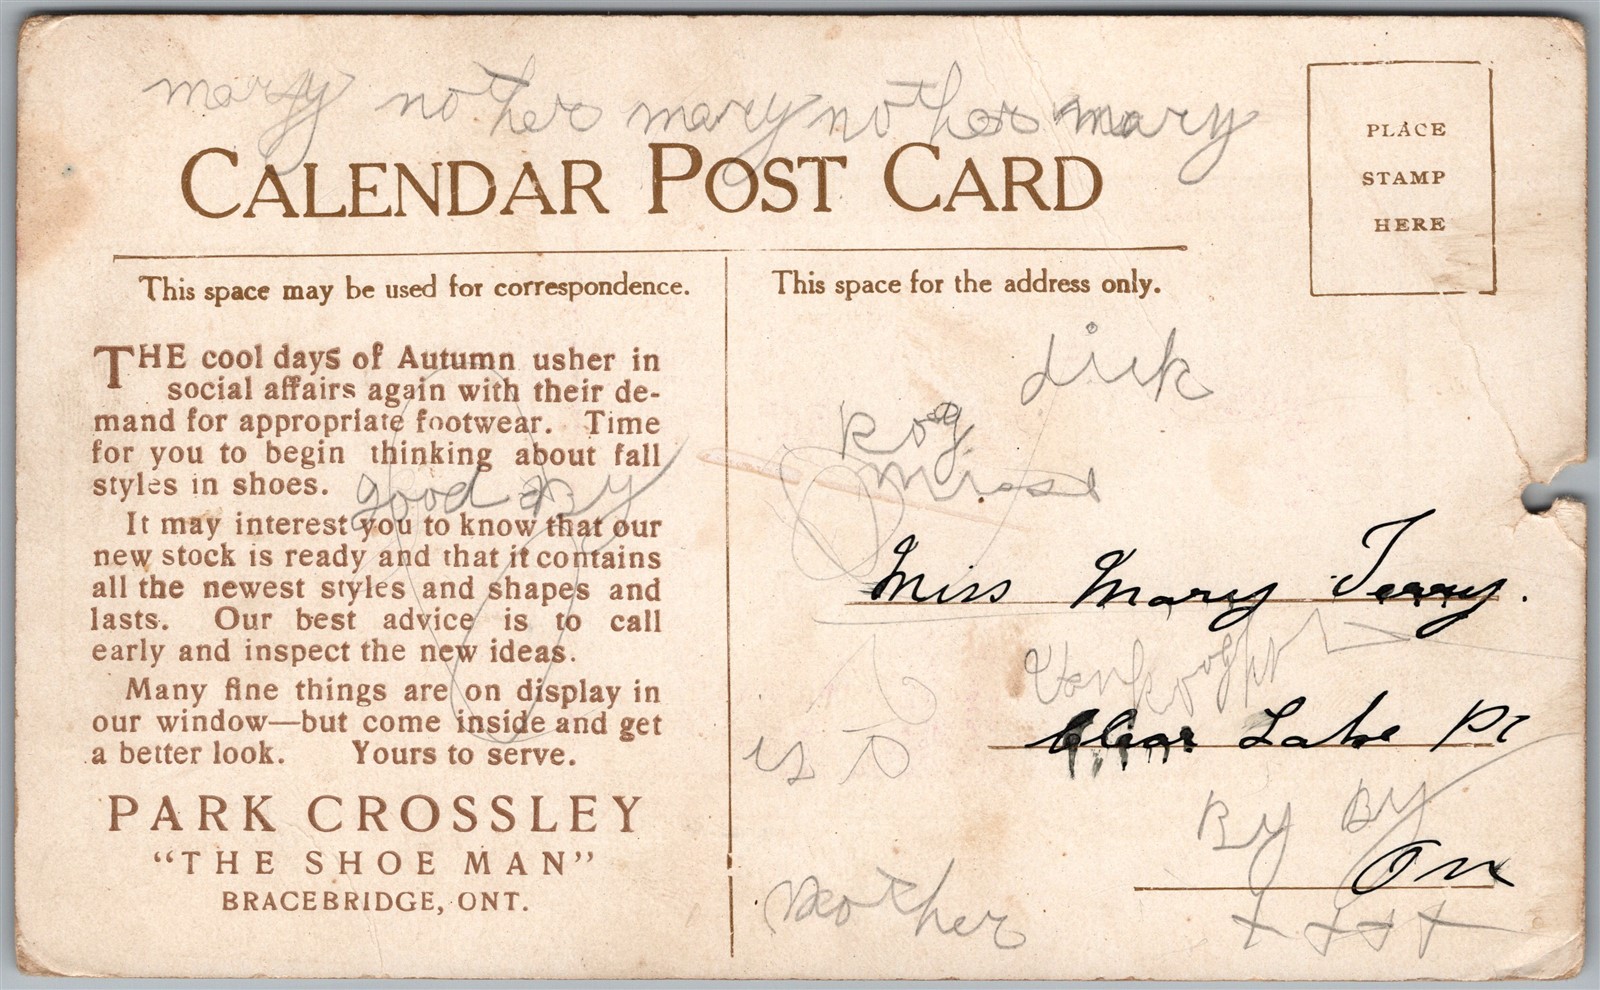 mary nother mary nother mary
CALENDAR POST CARD
PLACE
STAMP
HERE
This space may be used for correspondence.
THE cool days of Autumn usher in
social affairs again with their de-
mand for appropriate footwear. Time
for you to begin thinking about fall
styles in shoes.
good By
It may interest you to know that our
new stock is ready and that it contains
all the newest styles and shapes and
lasts. Our best advice is to call
early and inspect the new ideas.
Many fine things are on display in
our window—but come inside and get
a better look. Yours to serve.
PARK CROSSLEY
"THE SHOE MAN"
BRACEBRIDGE, ONT.
This space for the address only.
Miss Mary Terry.
Clear Lake
By By
On
mother